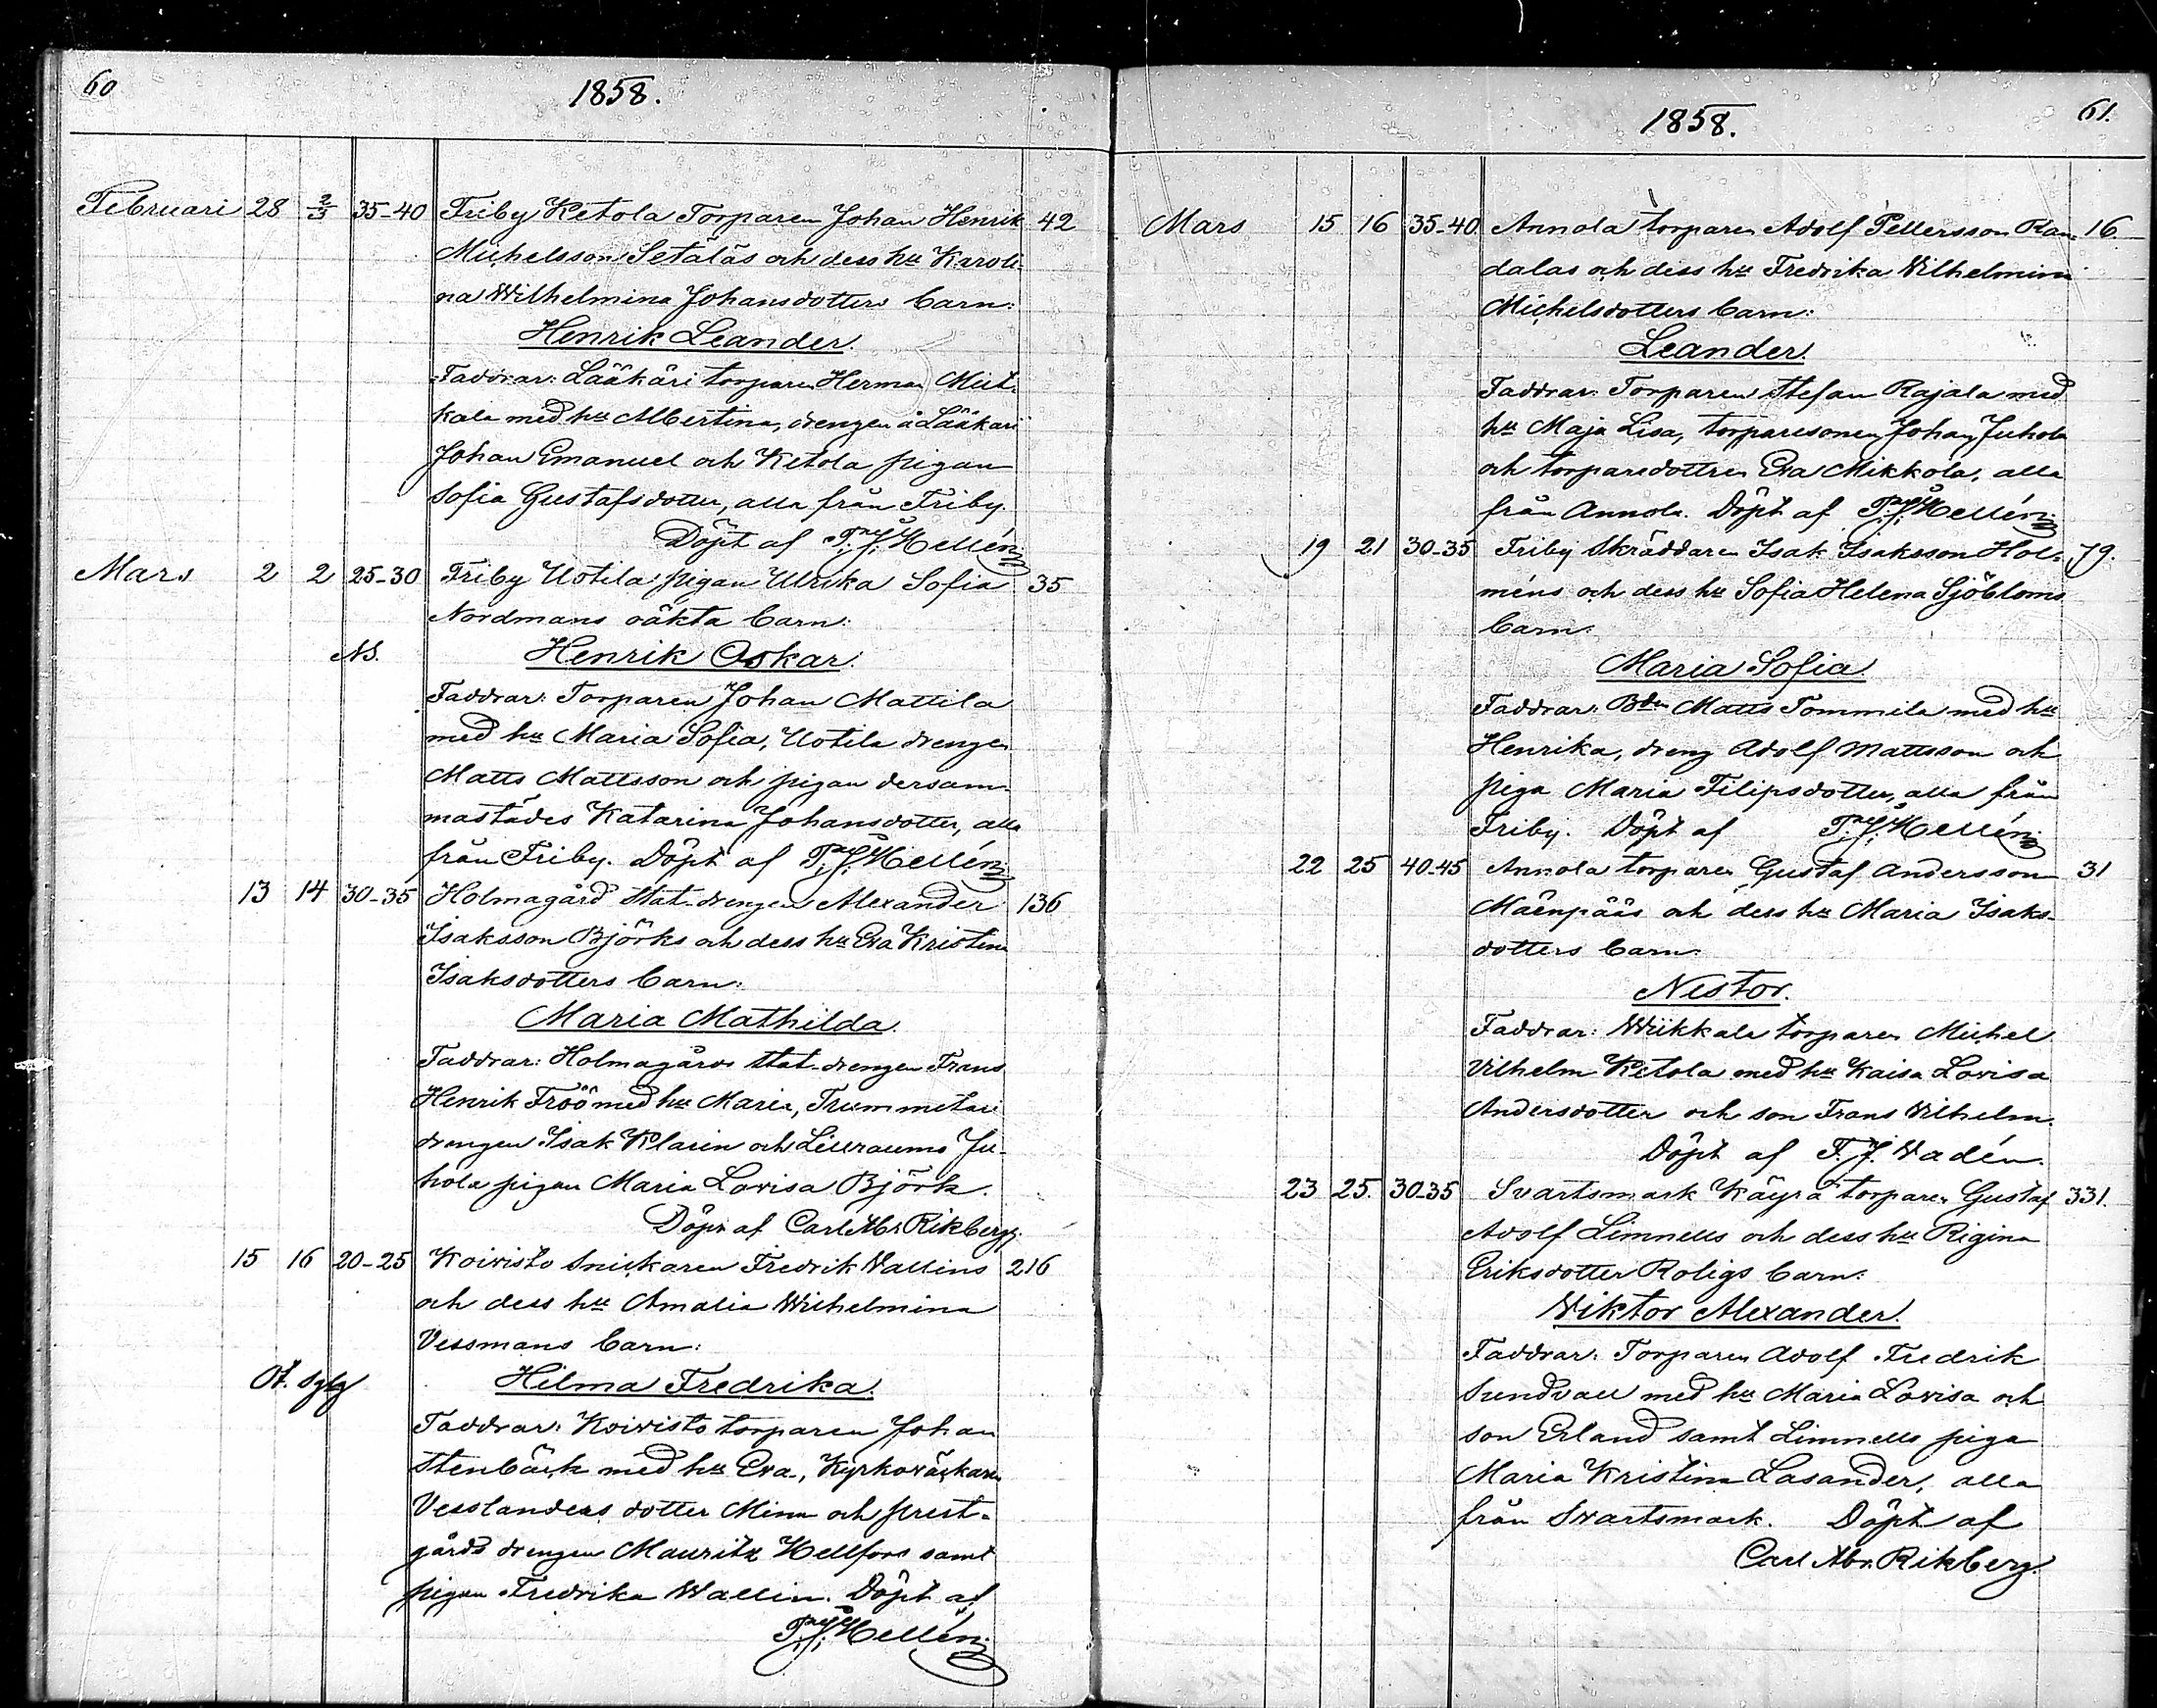 60
1858.
Februari 28 2/3 35-40 Friby Ketola Torparen Johan Henrik 42
Michelsson Setäläs och dess hu Karoli-
na Wilhelmina Johansdotters barn:
Henrik Leander.
Faddrar: Lääkäri torparen Herman Miet-
kala med hu Albertina, drengen å Lääkäri
Johan Emanuel och Ketola pigan
Sofia Gustafsdotter, alla från Friby.
Döpt af F. J. Hellén
Mars 2 2 25-30 Friby Uotila pigan Ulrika Sofia 35
Nordmans oäkta barn:
NB. Henrik Oskar.
Faddrar: Torparen Johan Mattila
med hu Maria Sofia, Uotila drengen
Matts Mattsson och pigan dersam-
mastädes Katarina Johansdotter, alla
från Friby. Döpt af F. J. Hellén
13 14 30-35 Holmagård Stat-drengen Alexander 136
Isaksson Björks och dess hu Eva Kristina
Isaksdotters barn:
Maria Mathilda.
Faddrar: Holmagårds stat-drengen Frans
Henrik Fröö med hu Maria, Trummetari
drengen Isak Klarin och Ju-
hola pigan Maria Lovisa Björk.
Döpt af Carl Abr. Rikberg.
15 16 20-25 Koivisto Snickaren Fredrik Wallins 216
och dess hu Amalia Wilhelmina
Vessmans barn:
Hilma Fredrika.
Faddrar: Koivisto torparen Johan
Stenbäck med hu Eva, Kyrkoväktaren
Vesslanders dotter Mina och prest-
gårds drengen Mauritz Hellfors samt
pigan Fredrika Wallin. Döpt af
F. J. Hellén
61.
1858.
Mars 15 16 35-40 Annola torparen Adolf Pettersson Ran- 16.
dalas och dess hu Fredrika Wilhelmina
Michelsdotters barn:
Leander.
Faddrar: Torparen Stefan Rajala med
hu Maja Lisa, torparesonen Johan Juhola
och torparedottren Eva Mikkola, alla
från Annola. Döpt af F. J. Hellén
19 21 30-35 Friby Skräddaren Isak Isaksson Hol- 79.
méns och dess hu Sofia Helena Sjöbloms
barn:
Maria Sofia.
Faddrar: Bdn Matts Tommila med hu
Henrika, dreng Adolf Mattsson och
piga Maria Filipsdotter, alla från
Friby. Döpt af F. J. Hellén
22 25 40-45 Annola torparen Gustaf Andersson 31
Mäenpääs och dess hu Maria Isaks-
dotters barn:
Nestor.
Faddrar: Wiikkala torparen Michel
Vilhelm Ketola med hu Kaisa Lovisa
Andersdotter och son Frans Wilhelm.
Döpt af F. J. Vadén.
23 25. 30-35 Svartsmark Käyrä torparen Gustaf 331.
Adolf Limnells och dess hu Rigina
Eriksdotter Roligs barn:
Wiktor Alexander.
Faddrar: Torparen Adolf Fredrik
Sundvall med hu Maria Lovisa och
son Erland samt Limnells piga
Maria Kristina Lasander, alla
från Svartsmark. Döpt af
Carl Abr. Rikberg.